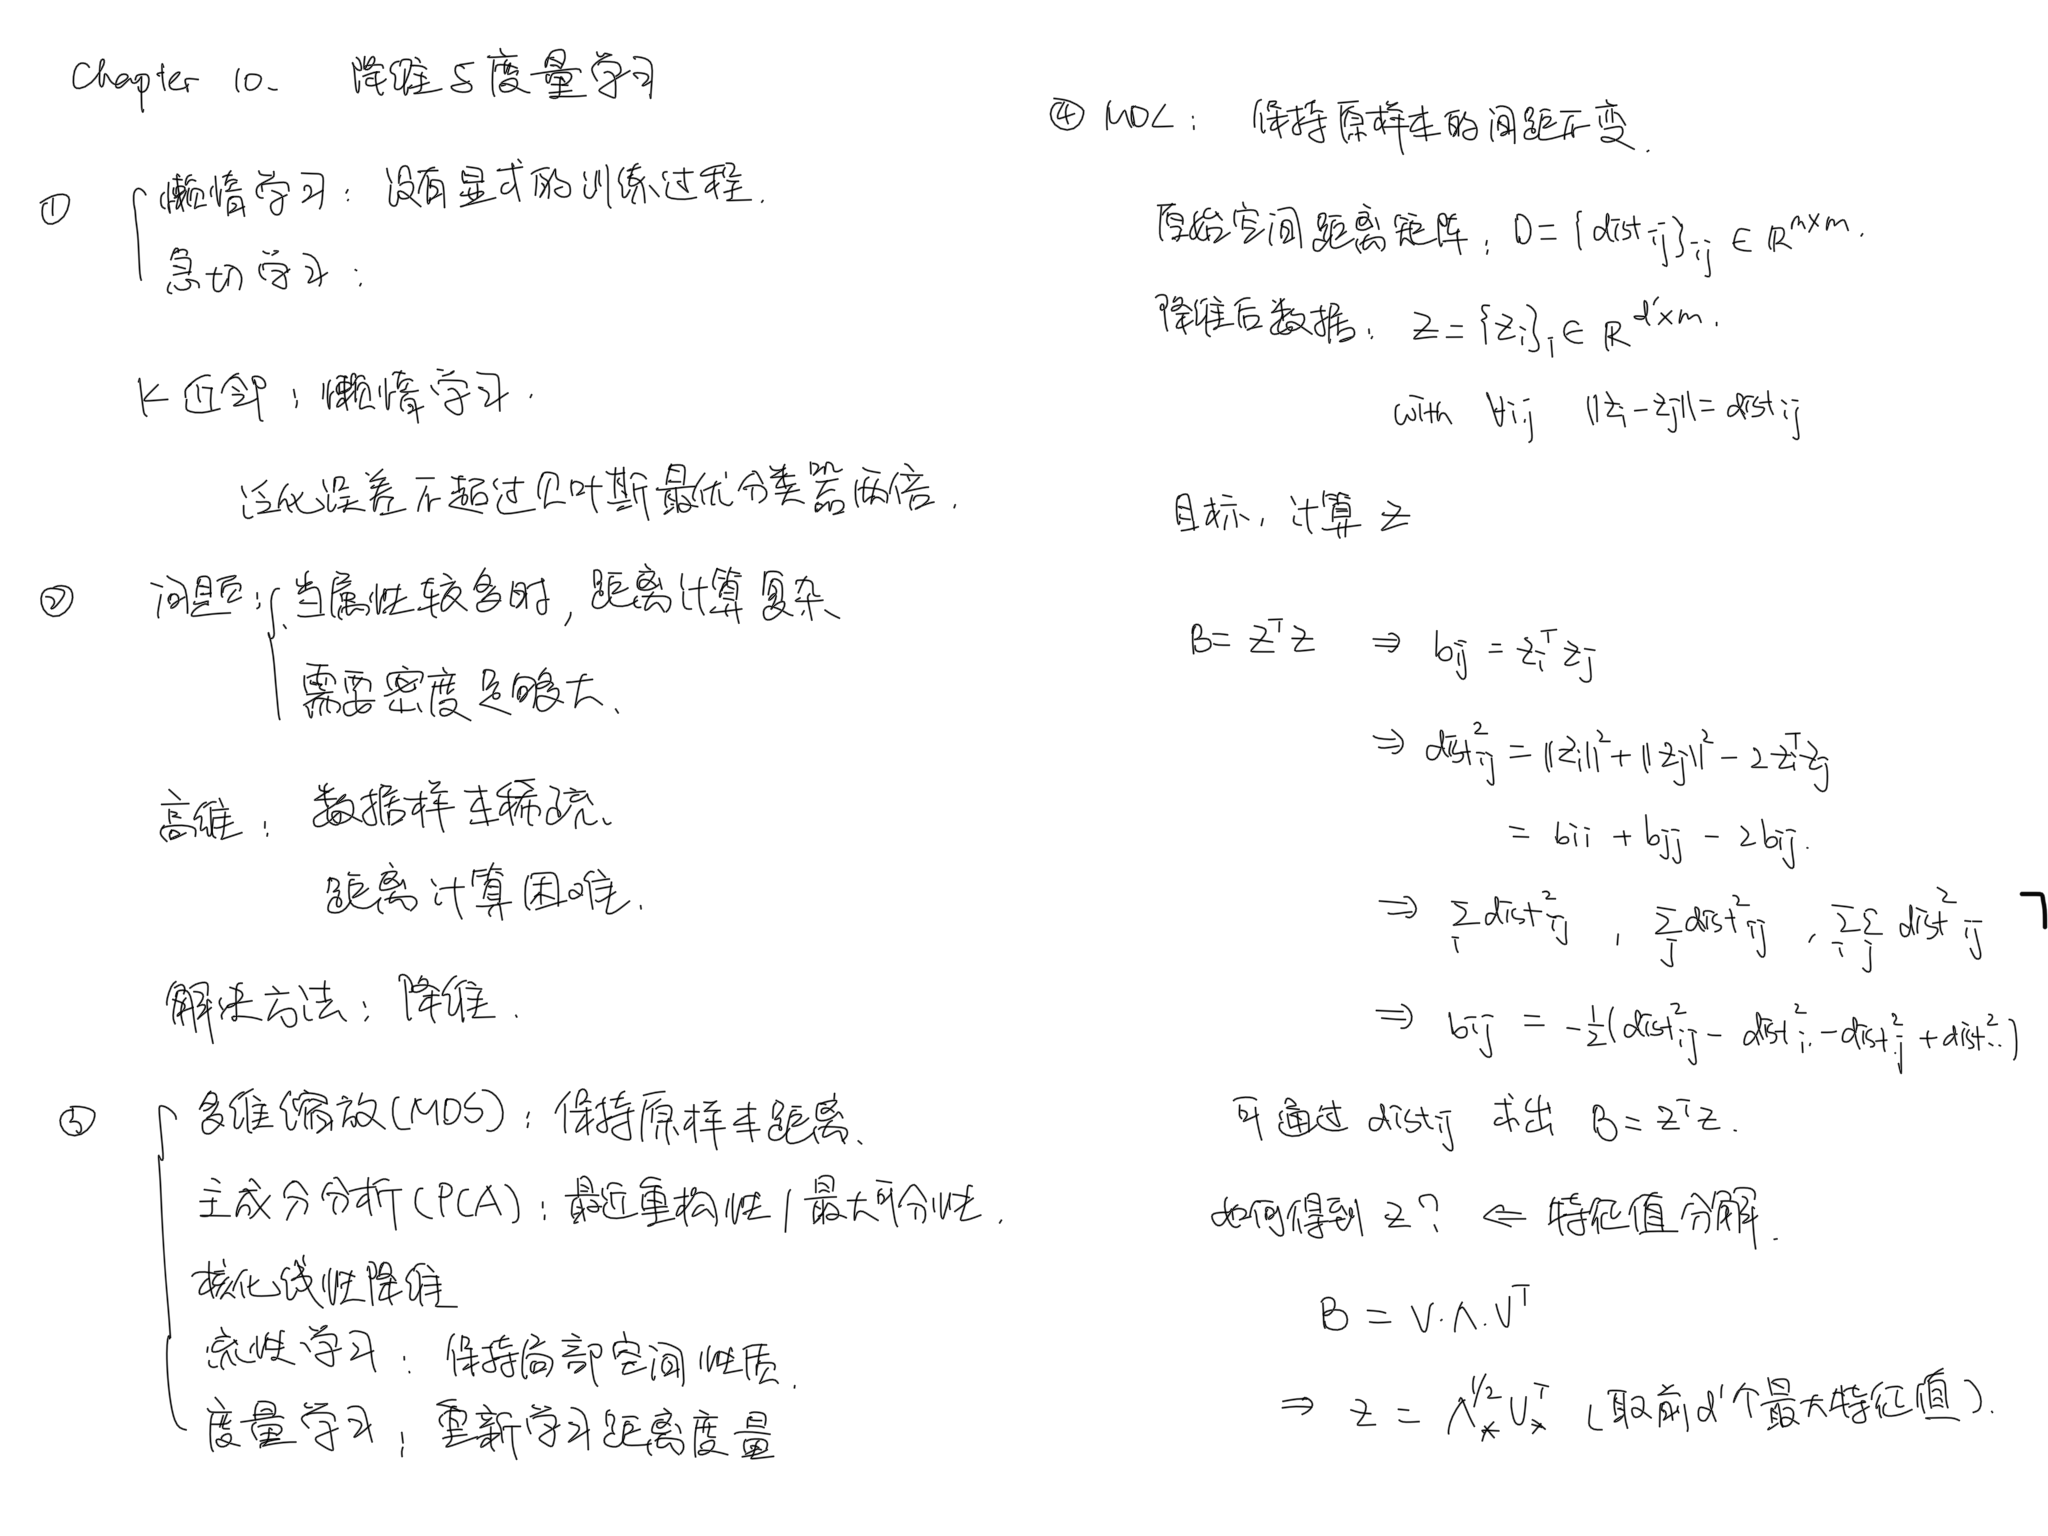 Chapter 10. 降维与度量学习
① 懒惰学习：没有显式的训练过程.
急切学习：
K近邻：懒惰学习.
泛化误差不超过贝叶斯最优分类器两倍.
② 问题：当属性较多时，距离计算复杂
需要密度足够大、
高维：数据样本稀疏、
距离计算困难.
解决方法：降维.
③ 多维缩放(MDS)：保持原样本距离、
主成分分析(PCA)：最近重构性/最大可分性.
核化线性降维
流性学习：保持局部空间性质.
度量学习：重新学习距离度量
④ MDL：保持原样本的间距不变.
原始空间距离矩阵：D = {dist ij}ij ∈ R^m×m.
降维后数据：Z = {zi}i ∈ R^d'×m.
with ∀i,j ||zi - zj|| = dist ij
目标：计算 Z
B = Z^T Z ⇒ bij = zi^T zj
⇒ dist²ij = ||zi||² + ||zj||² - 2 zi^T zj
= bii + bjj - 2bij.
⇒ Σi dist²ij , Σj dist²ij , Σi Σj dist²ij ㄱ
⇒ bij = -1/2(dist²ij - dist²i. - dist².j + dist²..)
可通过 dist ij 求出 B = Z^T Z.
如何得到 Z？ ⇐ 特征值分解.
B = V·Λ·V^T
⇒ Z = Λ*^1/2 V*^T (取前d'个最大特征值).